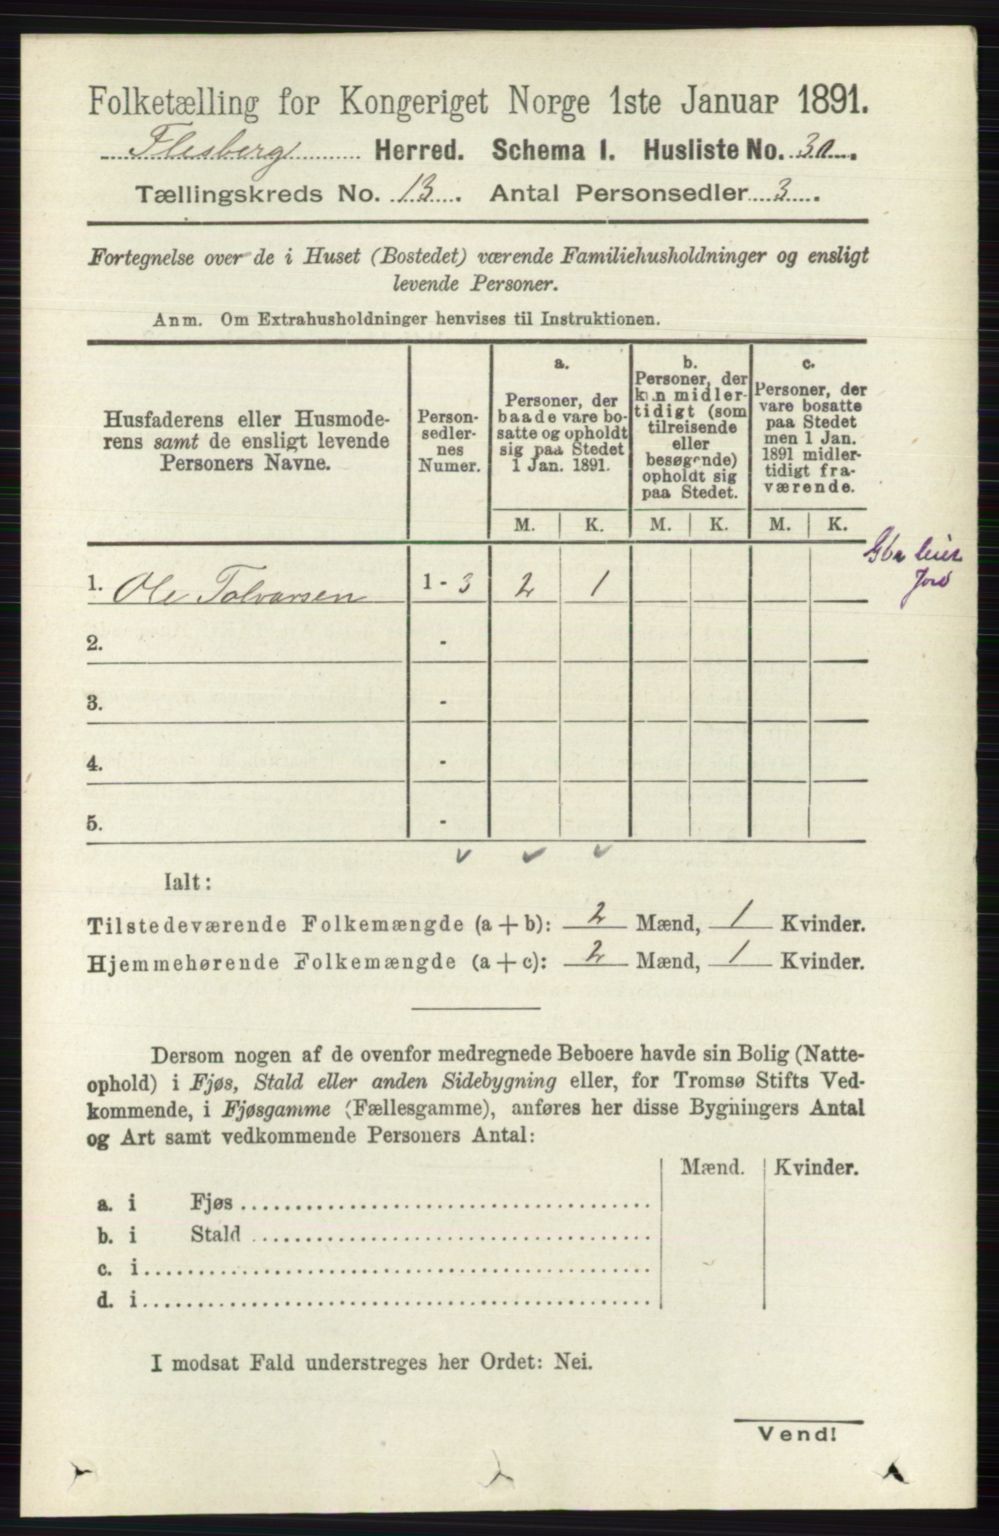 Folketælling for Kongeriget Norge 1ste Januar 1891.
Flesberg Herred. Schema I. Husliste No. 30.
Tællingskreds No. 13. Antal Personsedler 3.
Fortegnelse over de i Huset (Bostedet) værende Familiehusholdninger og ensligt
levende Personer.
Anm. Om Extrahusholdninger henvises til Instruktionen.
Husfaderens eller Husmode-
rens samt de ensligt levende
Personers Navne.
Person-
sedler-
nes
Numer.
a.
Personer, der
baade vare bo-
satte og opholdt
sig paa Stedet
1 Jan. 1891.
b.
Personer, der
kun midler-
tidigt (som
tilreisende
eller
besøgende)
opholdt sig
paa Stedet.
c.
Personer, der
vare bosatte
paa Stedet
men 1 Jan.
1891 midler-
tidigt fra-
værende.
M. K. M. K. M. K.
1. Ole Tolvarsen 1 - 3 2 1
2. -
3. -
4. -
5. -
Ialt:
Tilstedeværende Folkemængde (a + b): 2 Mænd, 1 Kvinder.
Hjemmehørende Folkemængde (a + c): 2 Mænd, 1 Kvinder.
Dersom nogen af de ovenfor medregnede Beboere havde sin Bolig (Natte-
ophold) i Fjøs, Stald eller anden Sidebygning eller, for Tromsø Stifts Ved-
kommende, i Fjøsgamme (Fællesgamme), anføres her disse Bygningers Antal
og Art samt vedkommende Personers Antal:
Mænd. Kvinder.
a. i Fjøs
b. i Stald
c. i
d. i
I modsat Fald understreges her Ordet: Nei.
Vend!